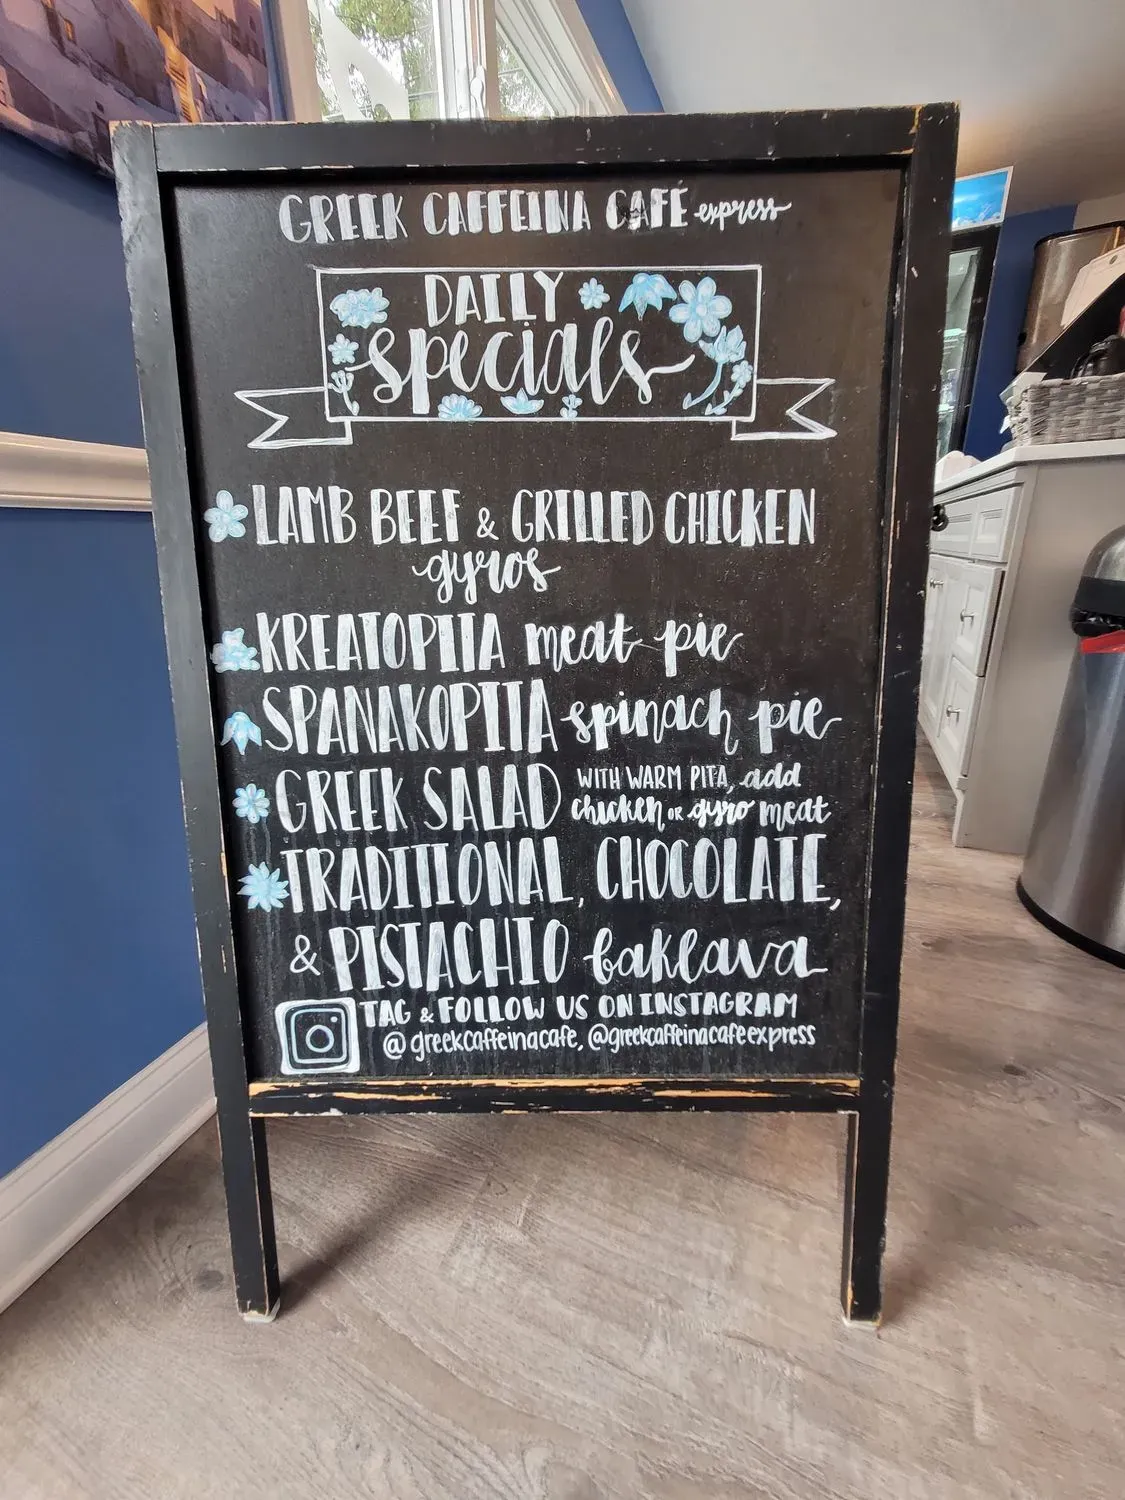 GREEK CAFFEINA CAFÉ express
DAILY
specials
LAMB BEEF & GRILLED CHICKEN
gyros
KREATOPITA meat pie
SPANAKOPITA spinach pie
GREEK SALAD WITH WARM PITA, add
chicken OR gyro meat
TRADITIONAL, CHOCOLATE,
& PISTACHIO baklava
TAG & FOLLOW US ON INSTAGRAM
@greekcaffeinacafe, @greekcaffeinacafeexpress